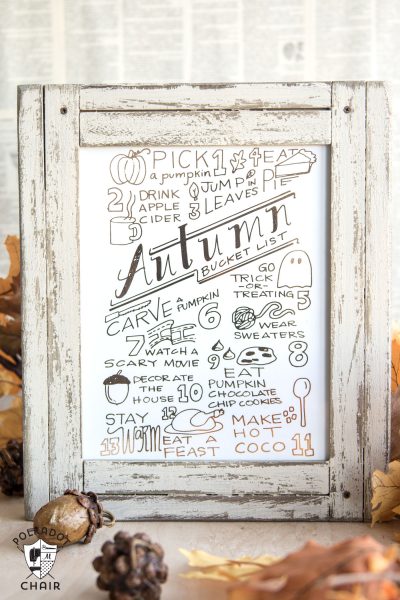 PICK 1 4 EAT
a pumpkin PIE
2 DRINK JUMP IN
APPLE 3 LEAVES
CIDER
Autumn
BUCKET LIST
GO
TRICK
-OR-
TREATING 5
CARVE A PUMPKIN 6
7 WEAR
WATCH A SWEATERS
SCARY MOVIE 9 8
EAT
DECORATE PUMPKIN
THE HOUSE 10 CHOCOLATE
CHIP COOKIES
STAY 12 MAKE
13 Warm EAT A HOT
FEAST COCO 11
POLKADOT
CHAIR